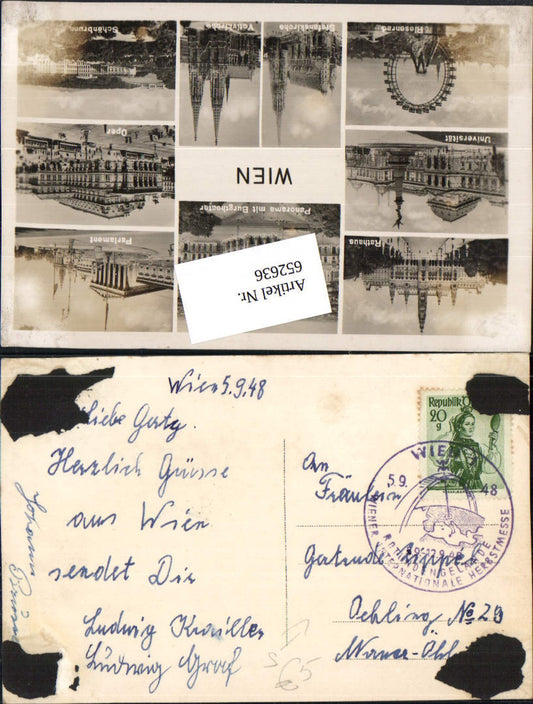 Schönbrunn
Votivkirche
Stefanskirche
Riesenrad
Oper
Universität
WIEN
Panorama mit Burgtheater
Parlament
Rathaus
Artikel Nr.
652636
Wien 5.9.48
Liebe
Herzlich Grüsse
aus Wien
sendet Dir
Ludwig
Ludwig Graf
Johann
Republik
20
g
WIEN
5.9. 48
ROTUNDENGELÄNDE
WIENER INTERNATIONALE HERBSTMESSE
An
Fräulein
Gertrude
Oehling No 29